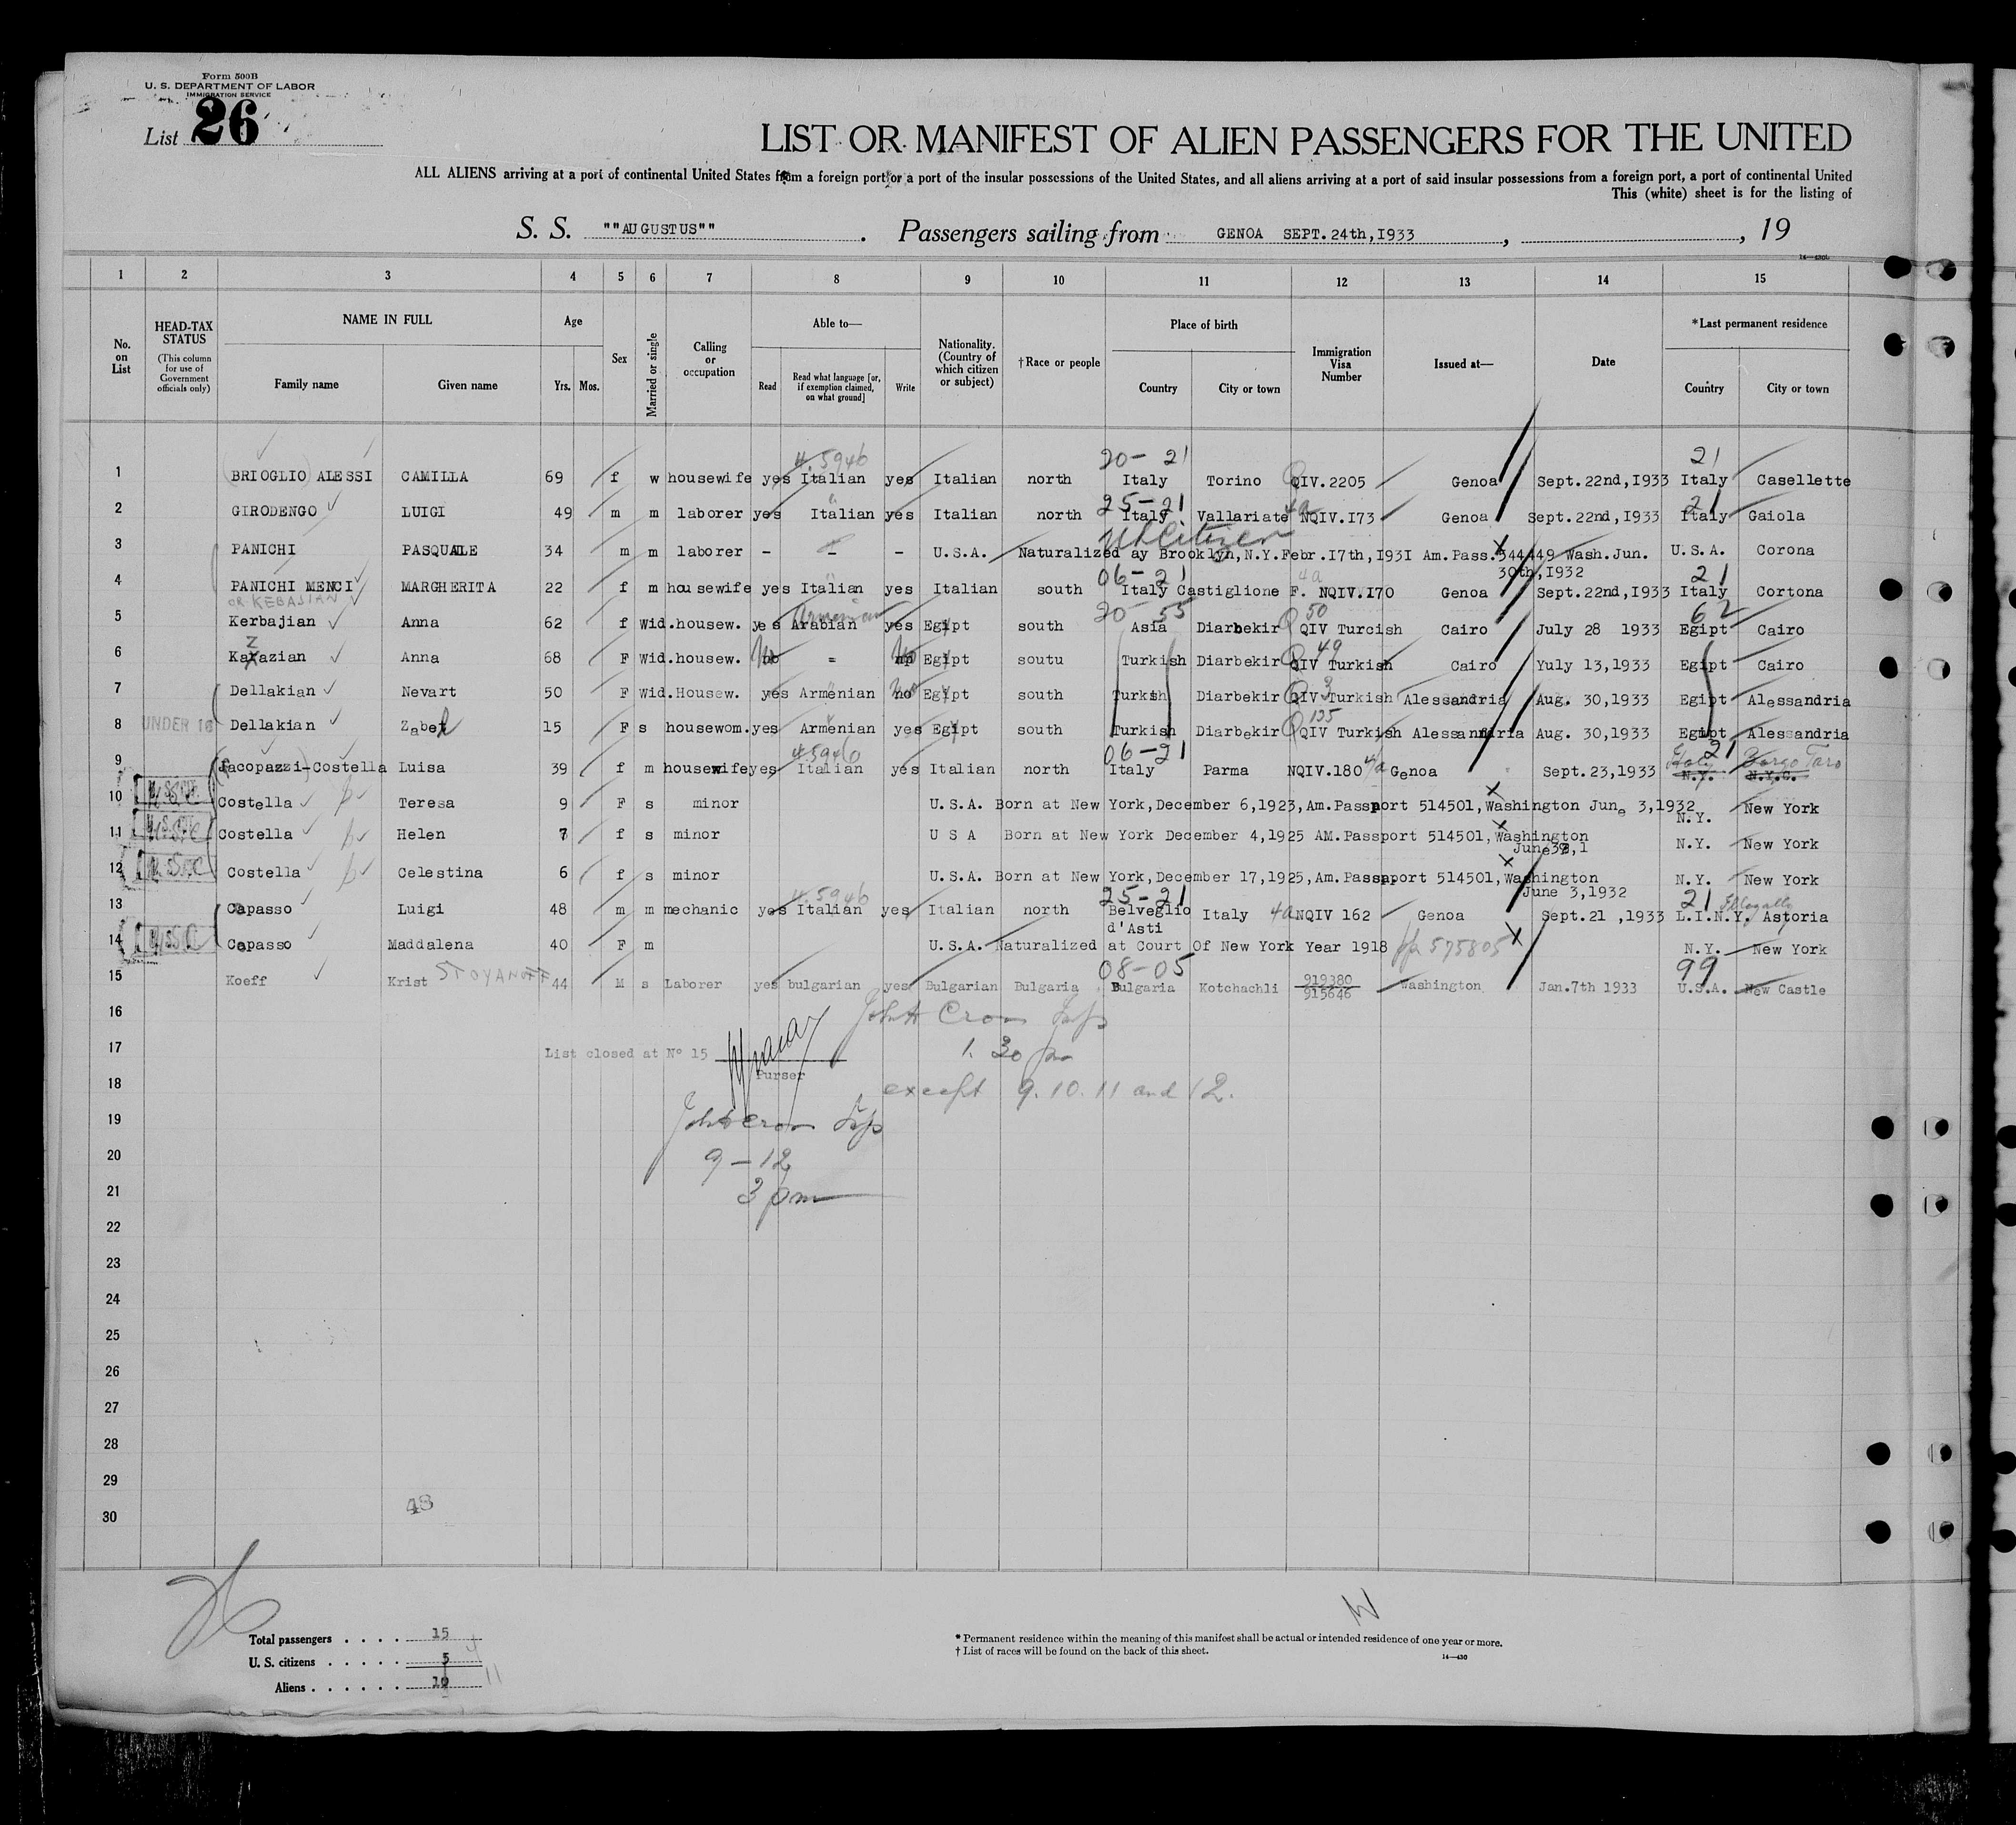 Form 500B
U. S. DEPARTMENT OF LABOR
IMMIGRATION SERVICE
List 26
LIST OR MANIFEST OF ALIEN PASSENGERS FOR THE UNITED
ALL ALIENS arriving at a port of continental United States from a foreign port or a port of the insular possessions of the United States, and all aliens arriving at a port of said insular possessions from a foreign port, a port of continental United
This (white) sheet is for the listing of
S. S. ""AUGUSTUS"" . Passengers sailing from GENOA SEPT.24th,I933 , , 19
1 2 3 4 5 6 7 8 9 10 11 12 13 14 15
No. on List
HEAD-TAX STATUS (This column for use of Government officials only)
NAME IN FULL Family name Given name
Age Yrs. Mos.
Sex
Married or single
Calling or occupation
Able to— Read Read what language [or, if exemption claimed, on what ground] Write
Nationality. (Country of which citizen or subject)
†Race or people
Place of birth Country City or town
Immigration Visa Number
Issued at—
Date
*Last permanent residence Country City or town
20-21 21
1 BRIOGLIO ALESSI CAMILLA 69 f w housewife yes Italian yes Italian north Italy Torino QIV.2205 Genoa Sept.22nd,I933 Italy Casellette
25-21 21
2 GIRODENGO LUIGI 49 m m laborer yes Italian yes Italian north Italy Vallariate NQIV.I73 Genoa Sept.22nd,I933 Italy Gaiola
US Citizen
3 PANICHI PASQUALE 34 m m laborer - - - U.S.A. Naturalized ay Brooklyn,N.Y.Febr.I7th,I93I Am.Pass.544449 Wash.Jun. 30th,I932 U.S.A. Corona
06-21 4a 21
4 PANICHI MENCI MARGHERITA 22 f m housewife yes Italian yes Italian south Italy Castiglione F. NQIV.I70 Genoa Sept.22nd,I933 Italy Cortona
OR KEBAJIAN Armenian 20 55 50 62
5 Kerbajian Anna 62 f Wid.housew. yes Arabian yes Egypt south Asia Diarbekir QIV Turcish Cairo July 28 1933 Egipt Cairo
Z 49
6 Kazazian Anna 68 F Wid.housew. no = no Egypt soutu Turkish Diarbekir QIV Turkish Cairo Yuly 13,1933 Egipt Cairo
3
7 Dellakian Nevart 50 F Wid.Housew. yes Armenian no Egypt south Turkish Diarbekir QIV Turkish Alessandria Aug. 30,1933 Egipt Alessandria
8 UNDER 16 Dellakian Zabel 15 F s housewom.yes Armenian yes Egypt south Turkish Diarbekir QIV Turkish Alessandria Aug. 30,1933 Egipt Alessandria
06-21 Italy 21 Borgo Taro
9 Jacopazzi-Costella Luisa 39 f m housewife yes Italian yes Italian north Italy Parma NQIV.180 4a Genoa Sept.23,1933 N.Y. N.Y.C.
10 Costella Teresa 9 F s minor U.S.A. Born at New York,December 6,1923,Am.Passport 514501,Washington June 3,1932 N.Y. New York
11 Costella Helen 7 f s minor U S A Born at New York December 4,1925 AM.Passport 514501,Washington N.Y. New York
12 Costella Celestina 6 f s minor U.S.A. Born at New York,December 17,1925,Am.Passport 514501,Washington June 3,1932 N.Y. New York
25-21 21
13 Capasso Luigi 48 m m mechanic yes Italian yes Italian north Belveglio d'Asti Italy 4a NQIV 162 Genoa Sept.21 ,1933 L.I.N.Y. Astoria
14 USC Capasso Maddalena 40 F m U.S.A. Naturalized at Court Of New York Year 1918 575805 N.Y. New York
08-05 99
15 Koeff Krist STOYANOFF 44 M s Laborer yes bulgarian yes Bulgarian Bulgaria Bulgaria Kotchachli 919380 915646 Washington Jan.7th 1933 U.S.A. New Castle
16
17 List closed at Nº 15 1. 30 pm
Purser
18 except 9. 10. 11 and 12.
19
20 9-12
21 3 pm
22
23
24
25
26
27
28
29
30
48
Total passengers . . . . 15
U. S. citizens . . . . . 5 4
Aliens . . . . . . 10 11
* Permanent residence within the meaning of this manifest shall be actual or intended residence of one year or more.
† List of races will be found on the back of this sheet.
14—430